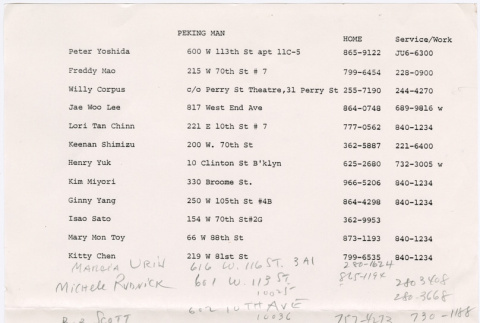 PEKING MAN
HOME Service/Work
Peter Yoshida 600 W 113th St apt 11C-5 865-9122 JU6-6300
Freddy Mao 215 W 70th St # 7 799-6454 228-0900
Willy Corpus c/o Perry St Theatre,31 Perry St 255-7190 244-4270
Jae Woo Lee 817 West End Ave 864-0748 689-9816 w
Lori Tan Chinn 221 E 10th St # 7 777-0562 840-1234
Keenan Shimizu 200 W. 70th St 362-5887 221-6400
Henry Yuk 10 Clinton St B'klyn 625-2680 732-3005 w
Kim Miyori 330 Broome St. 966-5206 840-1234
Ginny Yang 250 W 105th St #4B 864-4298 840-1234
Isao Sato 154 W 70th St#2G 362-9953
Mary Mon Toy 66 W 88th St 873-1193 840-1234
Kitty Chen 219 W 81st St 799-6535 840-1234
616 W. 116 ST. 3A1 280-1624
Michele 601 W. 113 St. 865-1192 280 3408
10025 280-3668
602 10TH AVE
SCOTT 10036 757-4372 730-1188